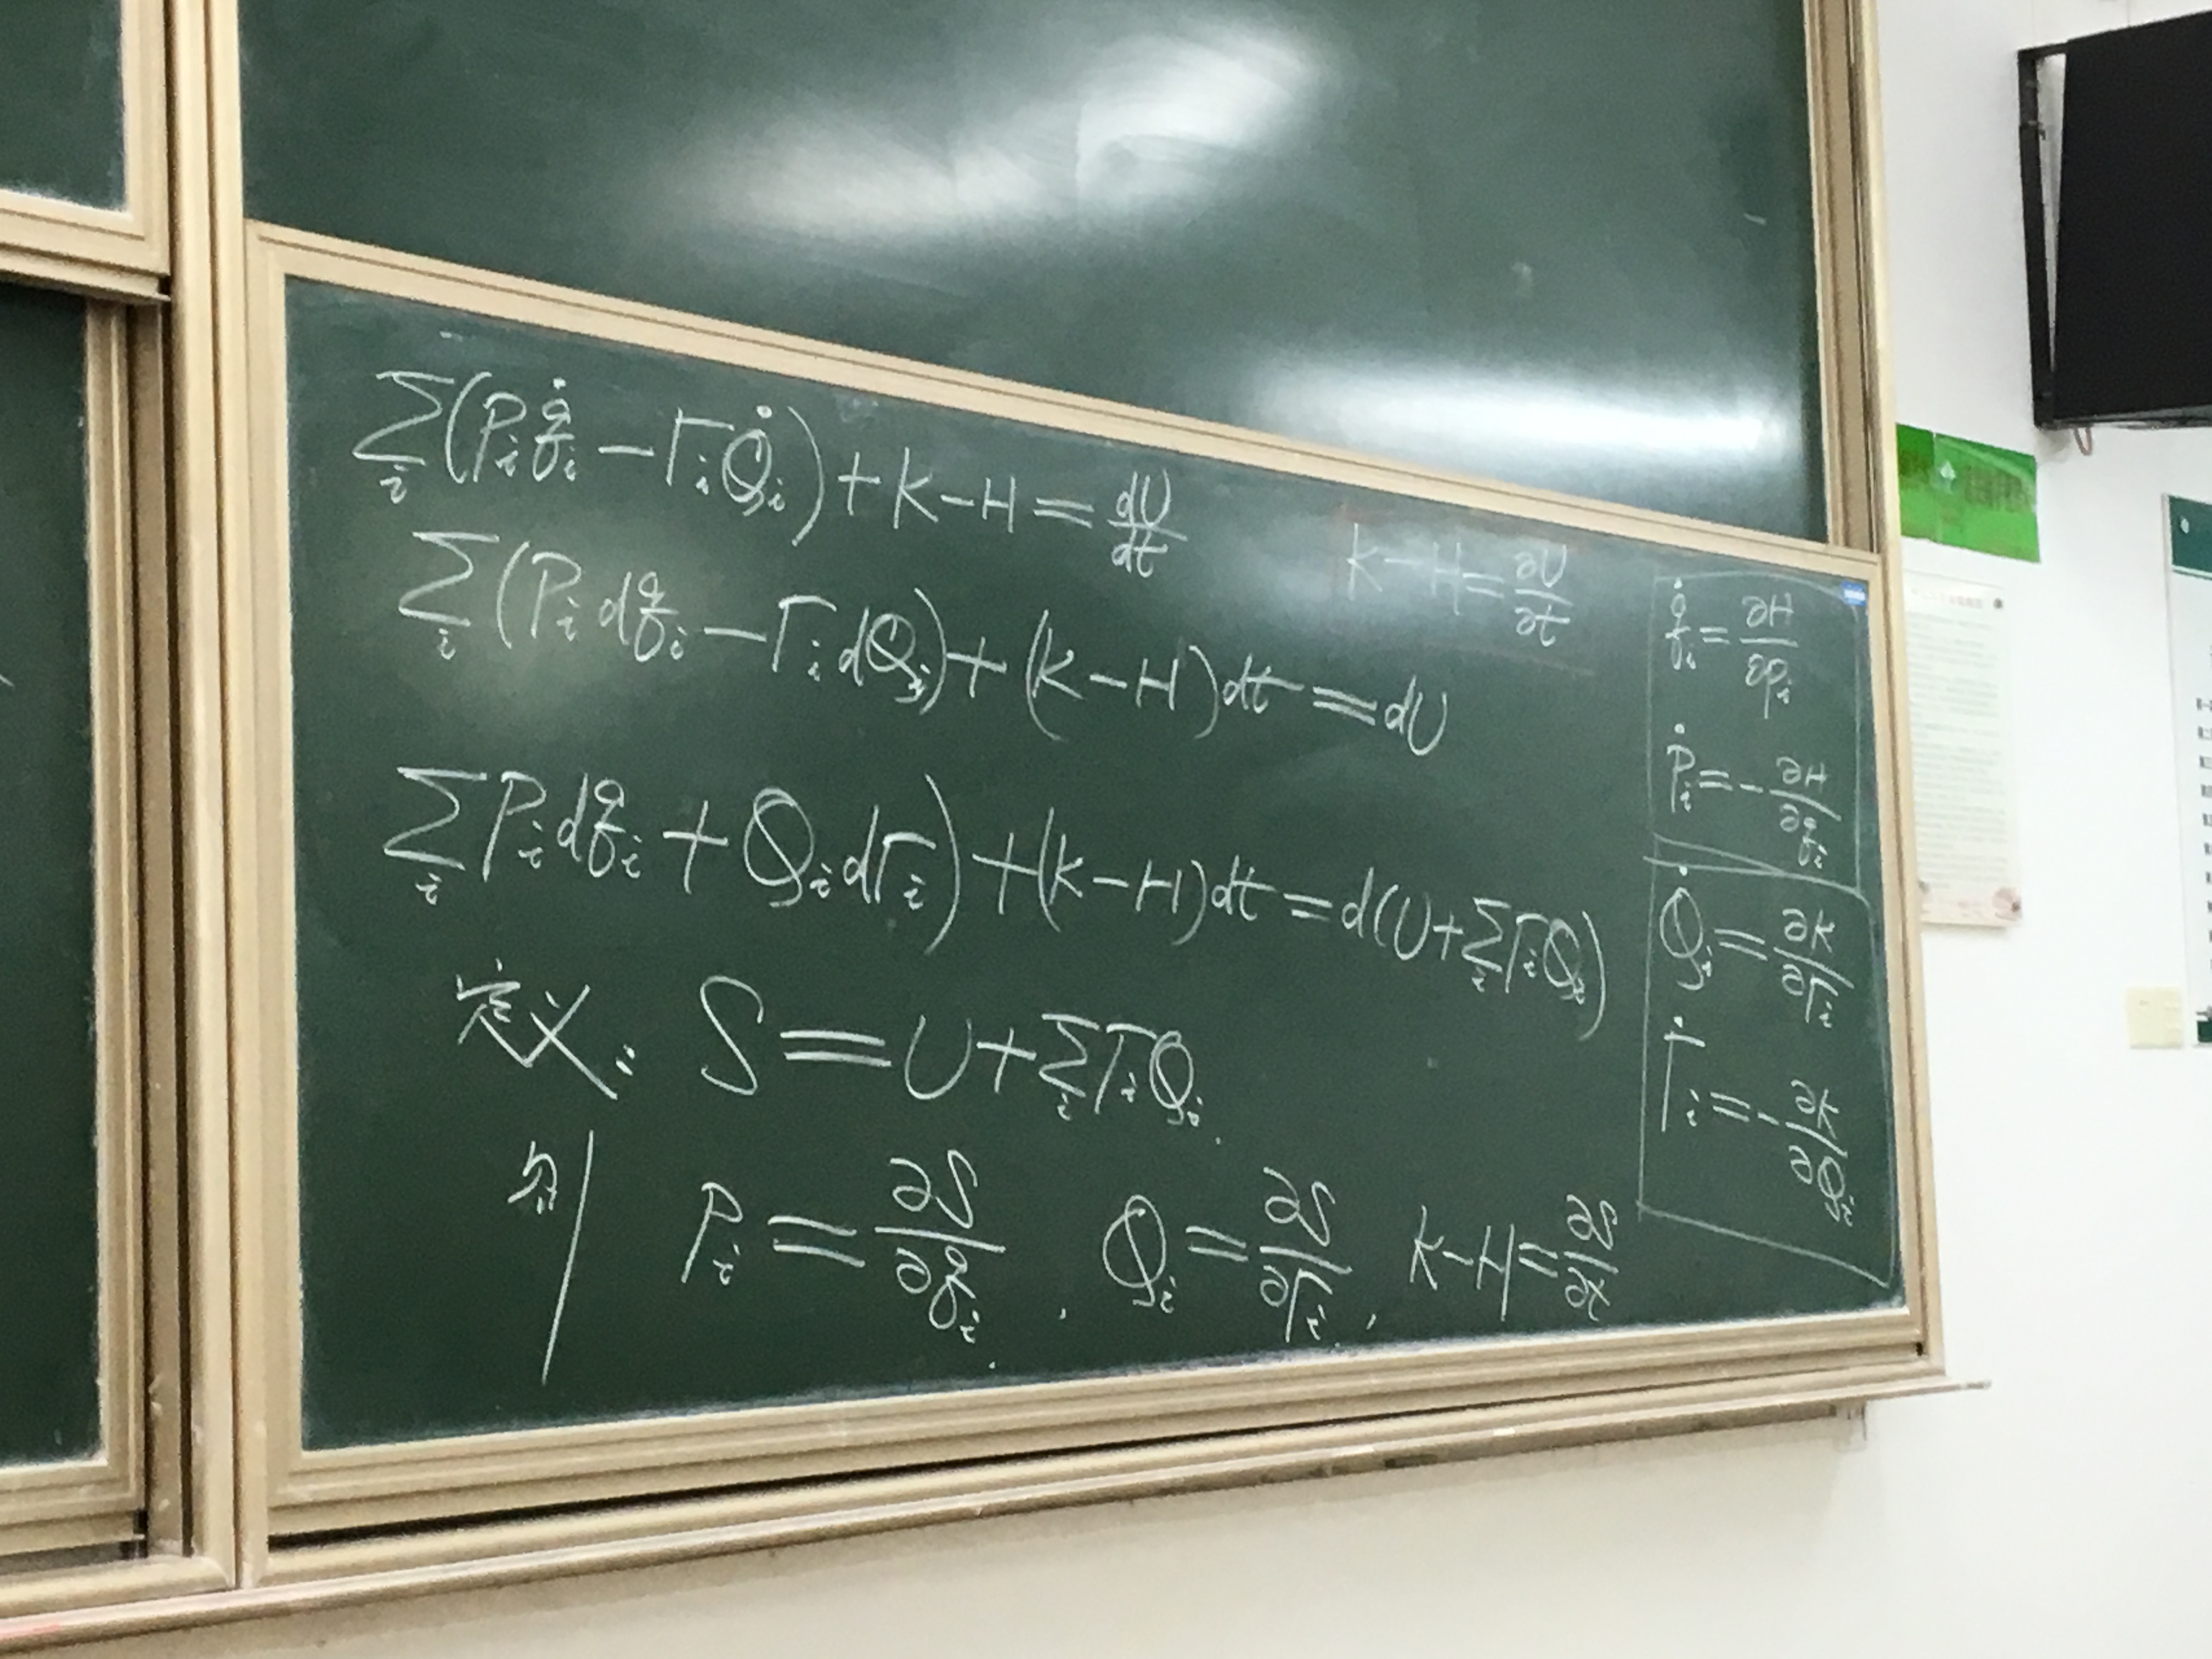 ∑_i (P_i q̇_i − Γ_i Q̇_i) + K − H = dU/dt
∑_i (P_i dq_i − Γ_i dQ_i) + (K − H) dt = dU
K − H = ∂U/∂t
∑_i P_i dq_i + Q_i dΓ_i) + (K − H) dt = d(U + ∑_i Γ_i Q_i)
定义: S = U + ∑_i Γ_i Q_i.
则 P_i = ∂S/∂q_i , Q_i = ∂S/∂Γ_i , K − H = ∂S/∂t
q̇_i = ∂H/∂p_i
Ṗ_i = − ∂H/∂q_i
Q̇_i = ∂K/∂Γ_i
Γ̇_i = − ∂K/∂Q_i